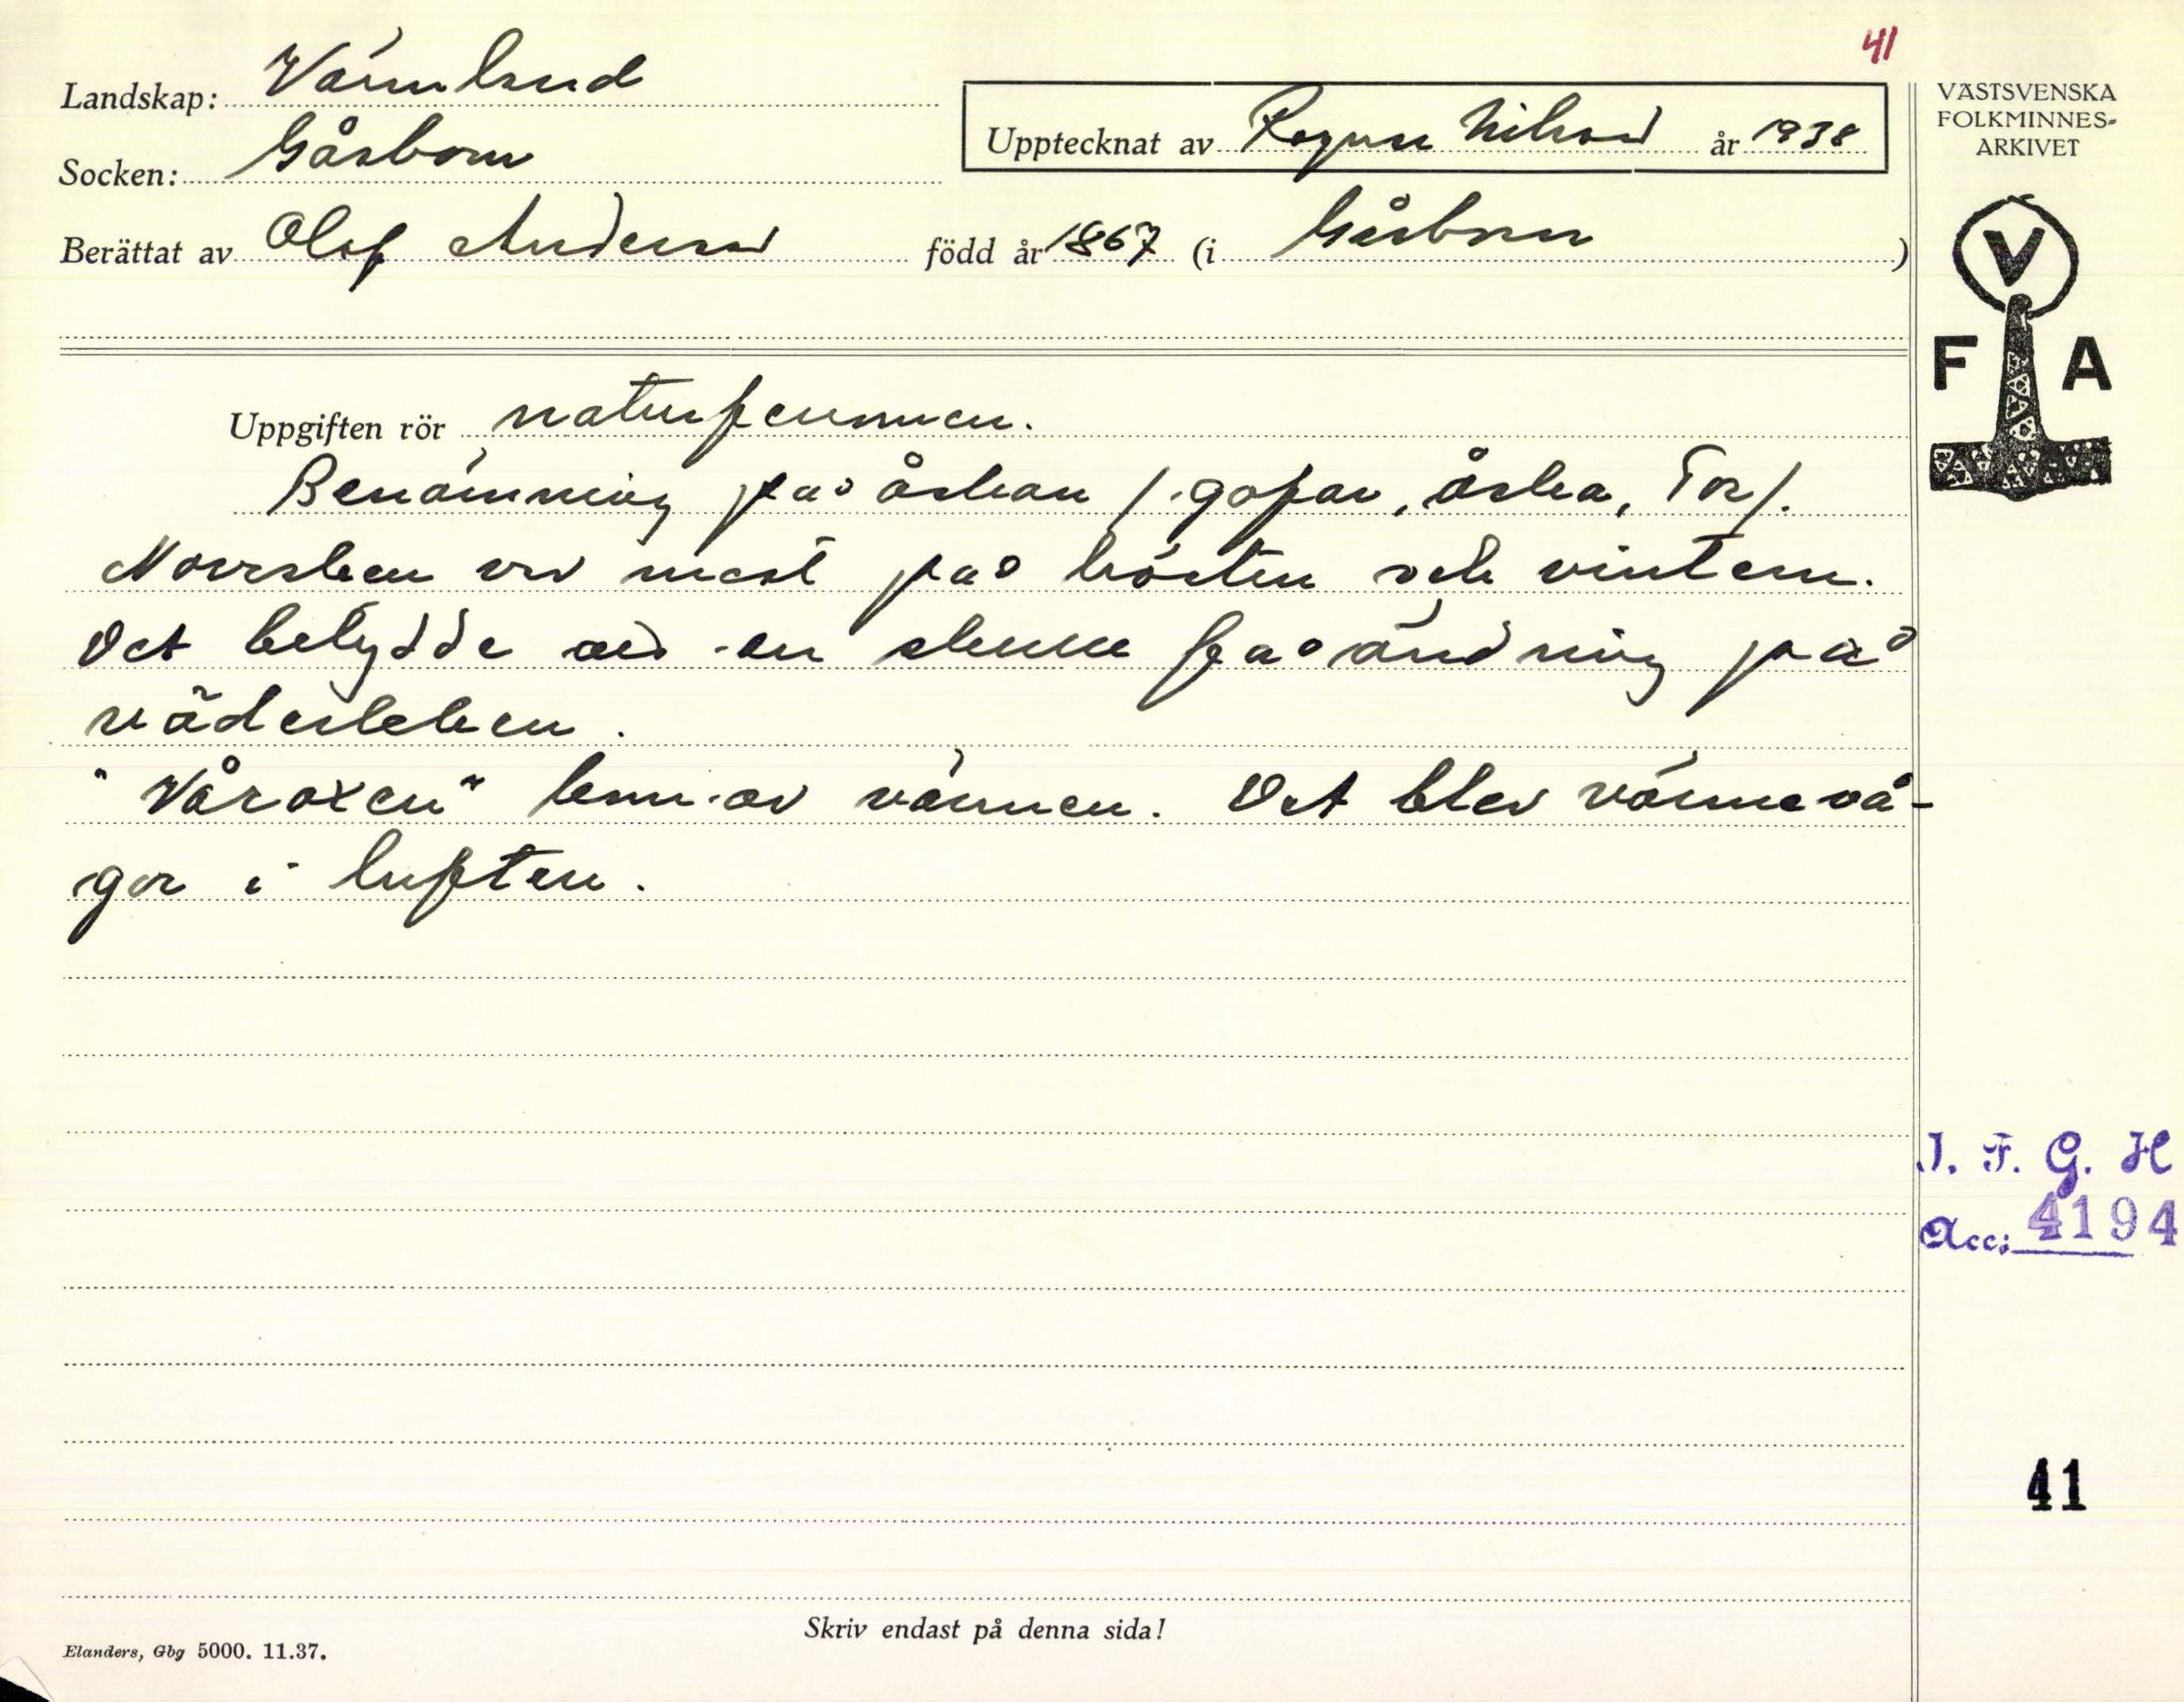 41
Landskap: Värmland
VÄSTSVENSKA
FOLKMINNES-
ARKIVET
Upptecknat av Ragnar Nilsson år 1938
Socken: Gåsborn
Berättat av Olof Andersson född år 1867 (i Gåsborn )
V
F A
Uppgiften rör naturfenomen.
Benämning på åskan /: gofar, åska, Tor/.
Norrsken var mest på hösten och vintern.
Det betydde en förändning på
väderleken.
"Våroxen" kom av värmen. Det blev värmevå-
gor i luften.
I. F. G. H
Acc: 4194
41
Skriv endast på denna sida!
Elanders, Gbg 5000. 11.37.